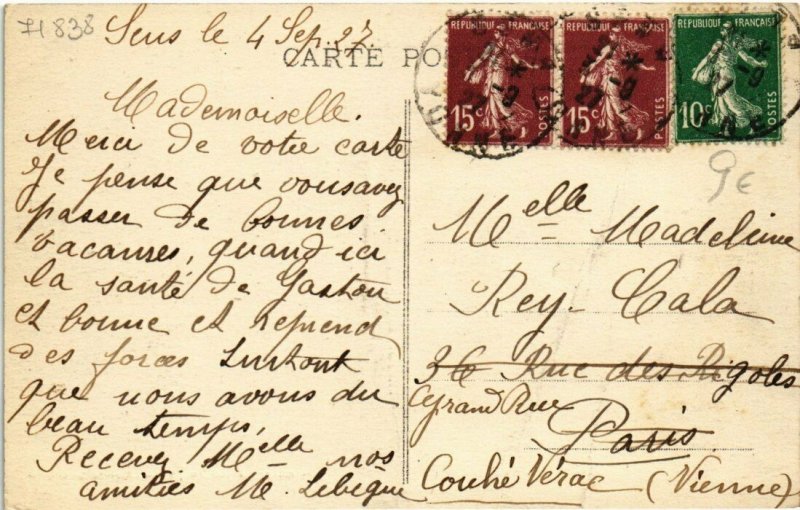 71838
Sens le 4 Sep. 27.
CARTE PO
Mademoiselle.
Merci de votre carte
Je pense que vous avez
passer de bonnes
vacances, quand ici
la santé de Gaston
et bonne et reprend
des forces surtout
que nous avons du
beau temps,
Recevez Melle nos
amitiés M. Lebègue
REPUBLIQUE FRANÇAISE
15c
POSTES
REPUBLIQUE FRANÇAISE
15c
POSTES
REPUBLIQUE FRANÇAISE
10c
POSTES
9€
Melle Madeleine
Rey-Cala
36 Rue des Rigoles
Grand Rue
Paris
Couhé Vérac (Vienne)